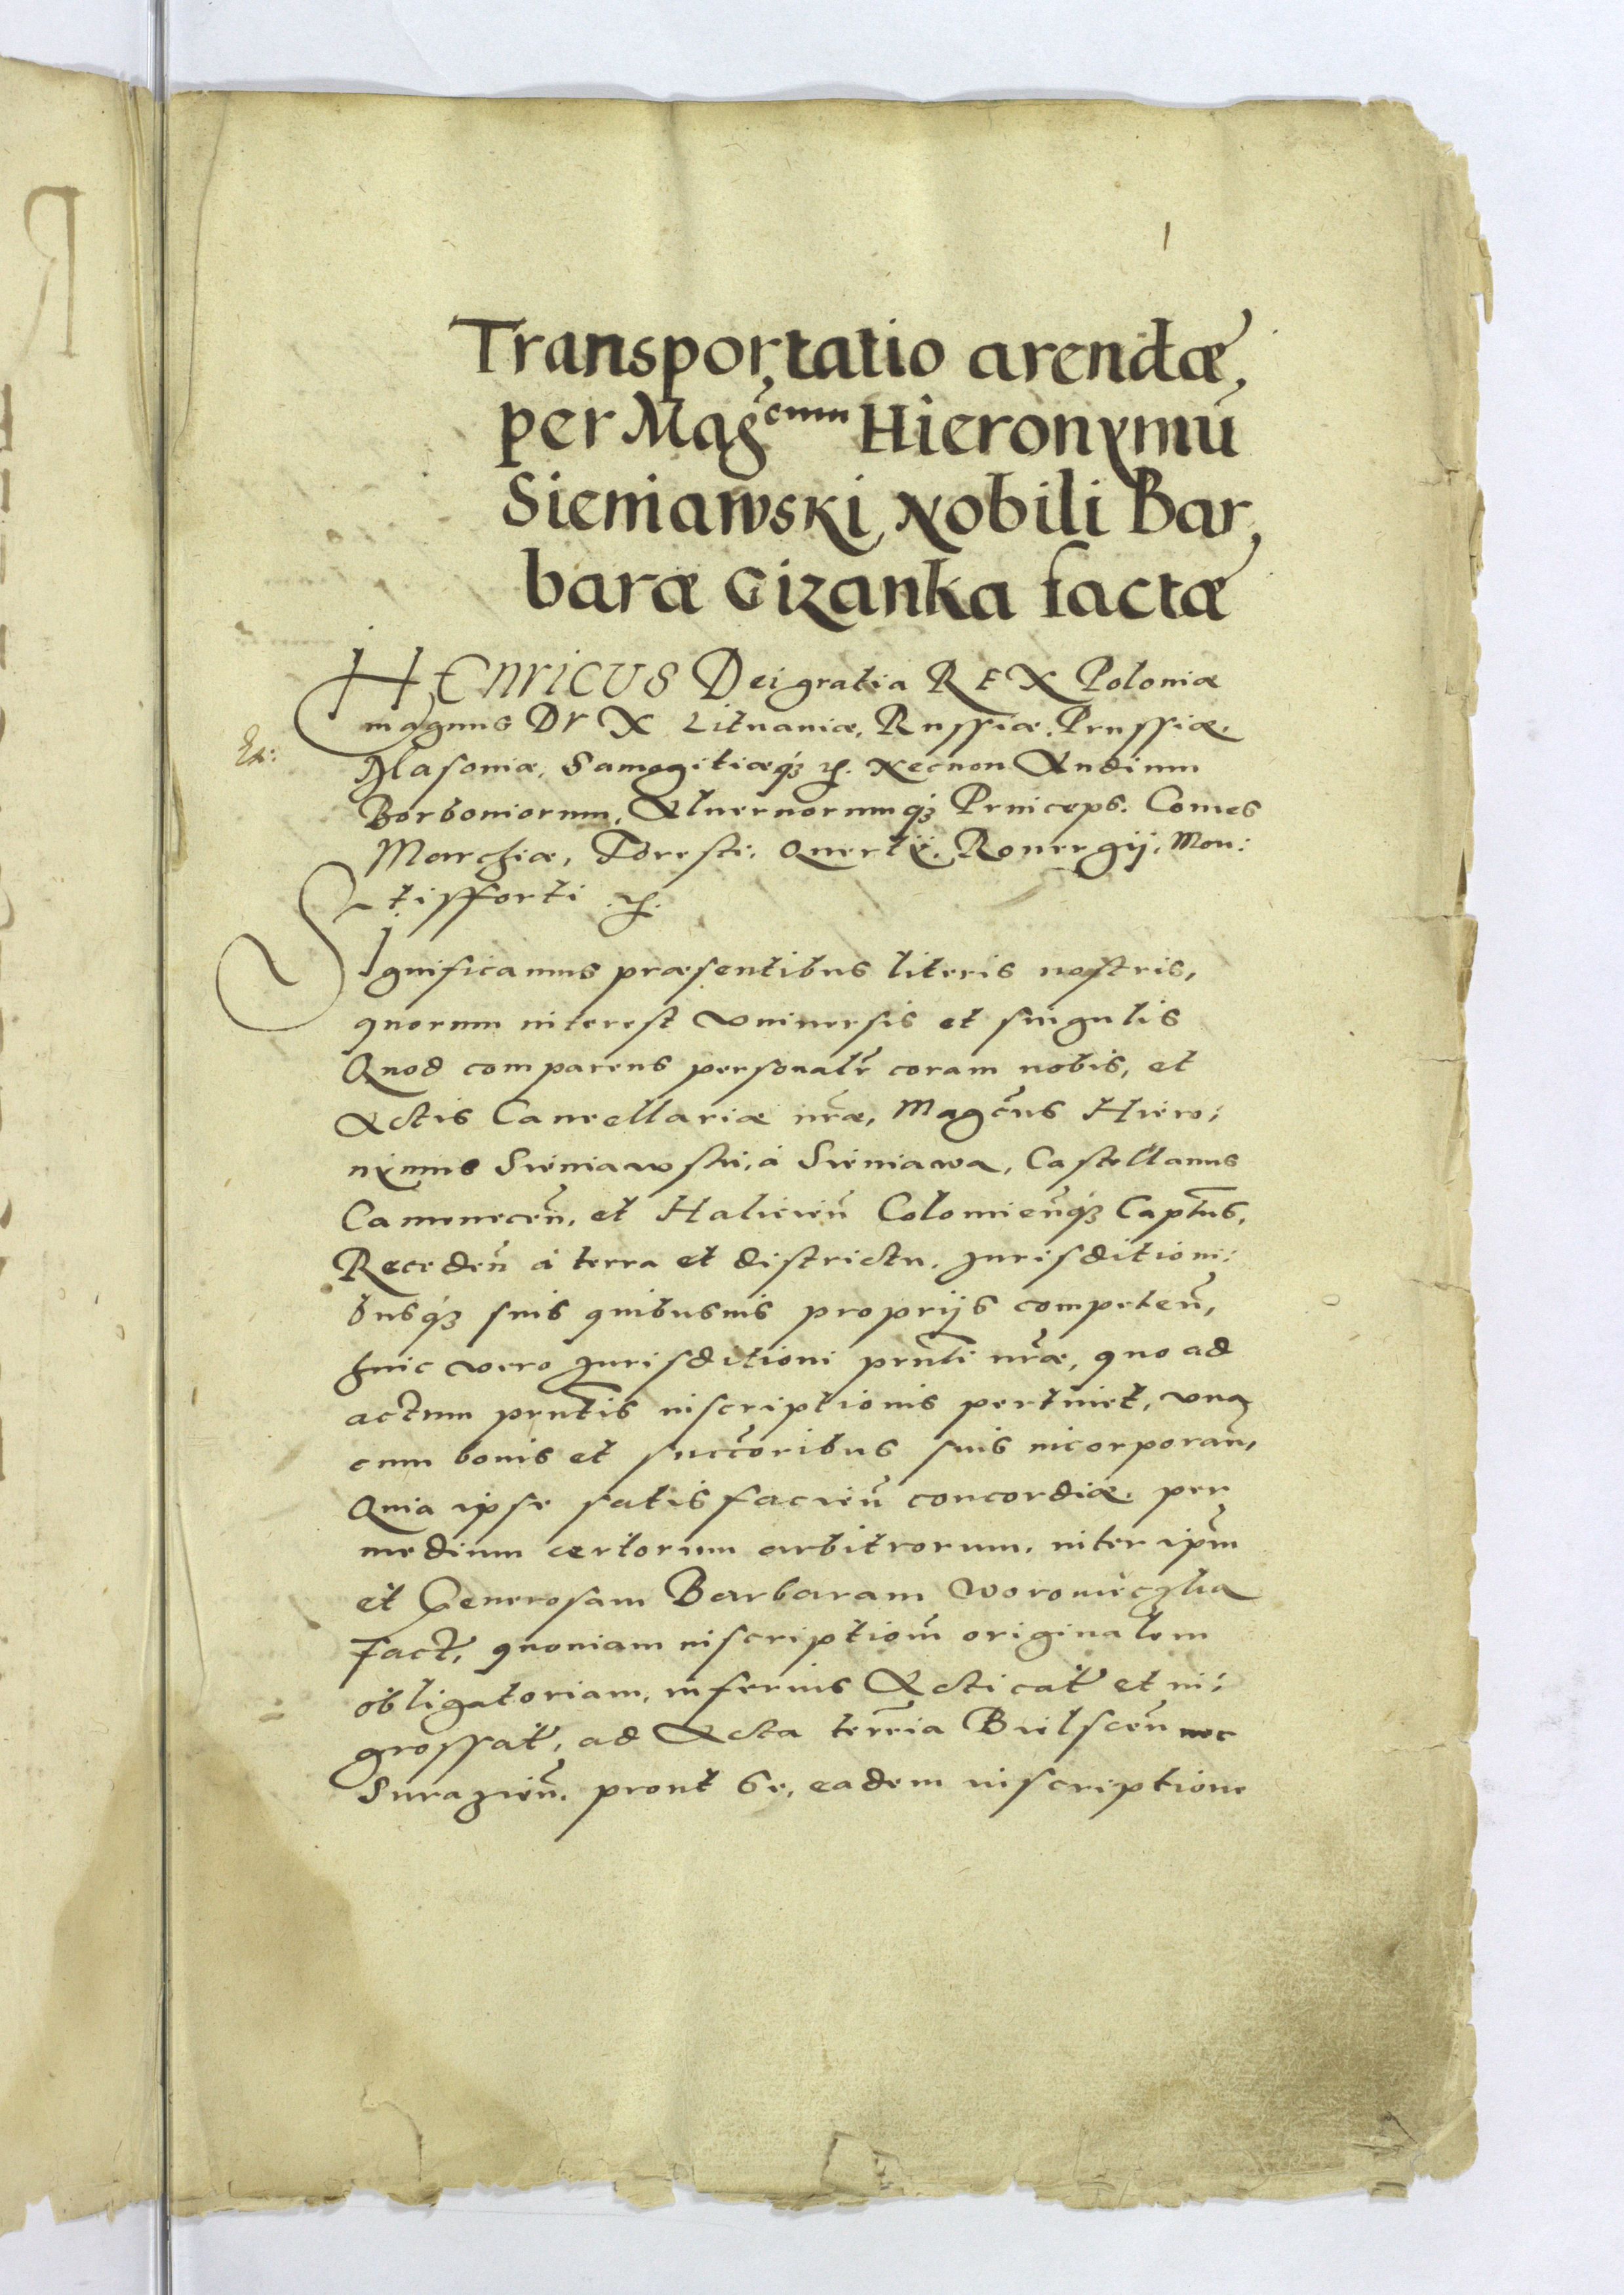 1
Transportatio arendæ,
per Mag͠cum Hieronymū
Sieniawski Nobili Bar,
baræ Gizanka factæ
HENRICUS Dei gratia REX Poloniæ
magnus DVX Lituaniæ, Russiæ, Prussiæ,
Masoniæ, Samogitiæq́ꝫ ꝛc. Necnon Andium
Borboniorum, Aluernorumq́ꝫ Princeps. Comes
Marchiæ, Foresti, Quertÿ, Rouergij, Mon:
tisfforti ꝛc.
Significamus præsentibus literis nostris,
quorum interest vniuersis et singulis
Quod comparens personalr̃ coram nobis, et
Actis Cancellariæ nr̃æ, Magc̃us Hiero:
nÿmus Sieniawski, à Sieniawa, Castellanus
Camenecen̄, et Halicien̄ Colomien̄q́ꝫ Captūs,
Receden̄ à terra et districtu, Jurisditioni:
busq́ꝫ suis quibusuis proprijs competen̄,
huic vero Jurisditioni prn̄ti nr̃æ, quo ad
actum prn̄tis inscriptionis pertinet, vna
cum bonis et succ̄oribus suis incorporan̄,
Quia ipse satisfacien̄ concordiæ, per
medium certorum arbitrorum, inter ipm̄
et Generosam Barbaram
fact, quoniam inscriptiom̄ originalem
obligatoriam, inferius Acticat̄ et in:
grossat̄, ad Acta terr̄ia Bielscen̄ nec
Surazien̄, prout se, eadem inscriptione